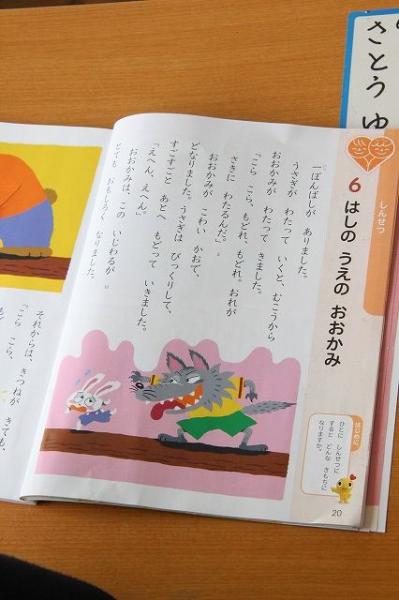 しんせつ
6 はしの うえの おおかみ
一ぽんばしが ありました。
うさぎが わたって いくと、むこうから
おおかみが わたって きました。
「こら こら、もどれ、もどれ。おれが
さきに わたるんだ。」
おおかみが こわい かおで、
どなりました。うさぎは びっくりして、
すごすごと あとへ もどって いきました。
「えへん、えへん。」
おおかみは、この いじわるが、
とても おもしろく なりました。
はじめに
ひとに しんせつに
すると どんな きもちに
なりますか。
20
それからは、きつねが きても、
「こら こら、
さとう ゆ